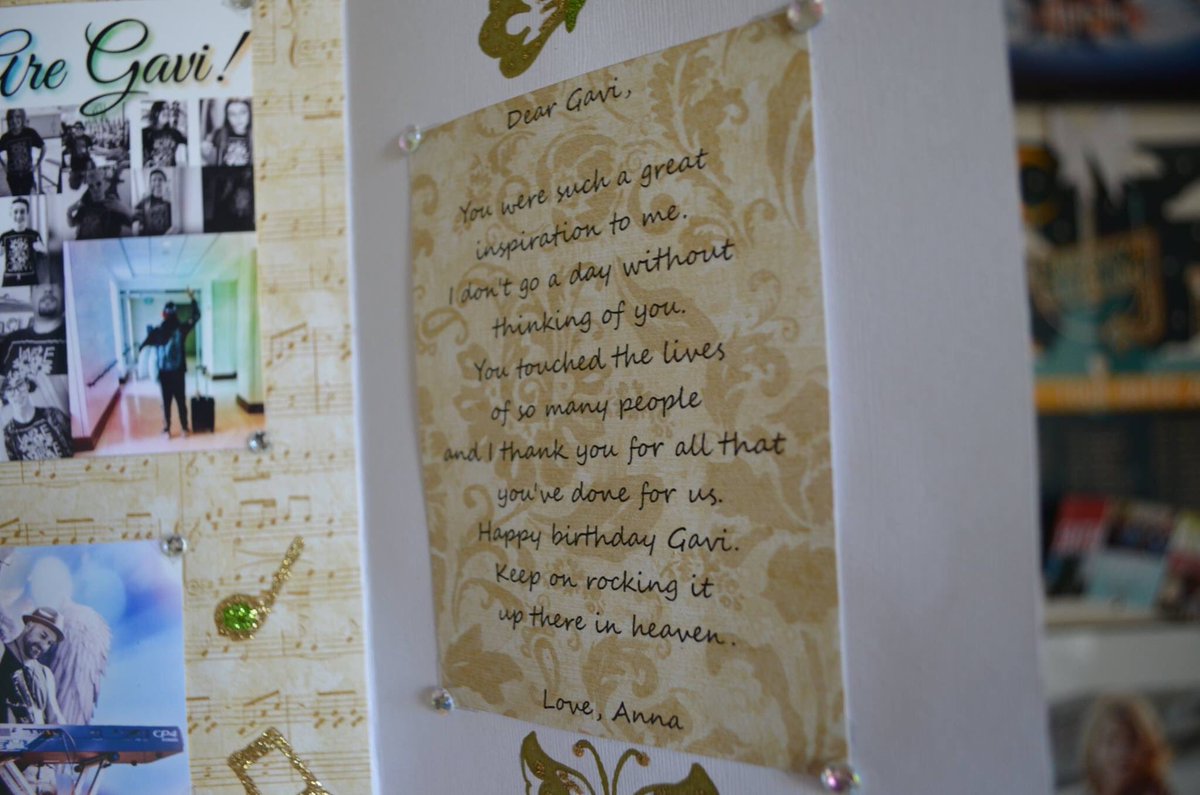 Are Gavi!
Dear Gavi,
You were such a great
inspiration to me.
I don't go a day without
thinking of you.
You touched the lives
of so many people
and I thank you for all that
you've done for us.
Happy birthday Gavi.
Keep on rocking it
up there in heaven.
Love, Anna
CP4